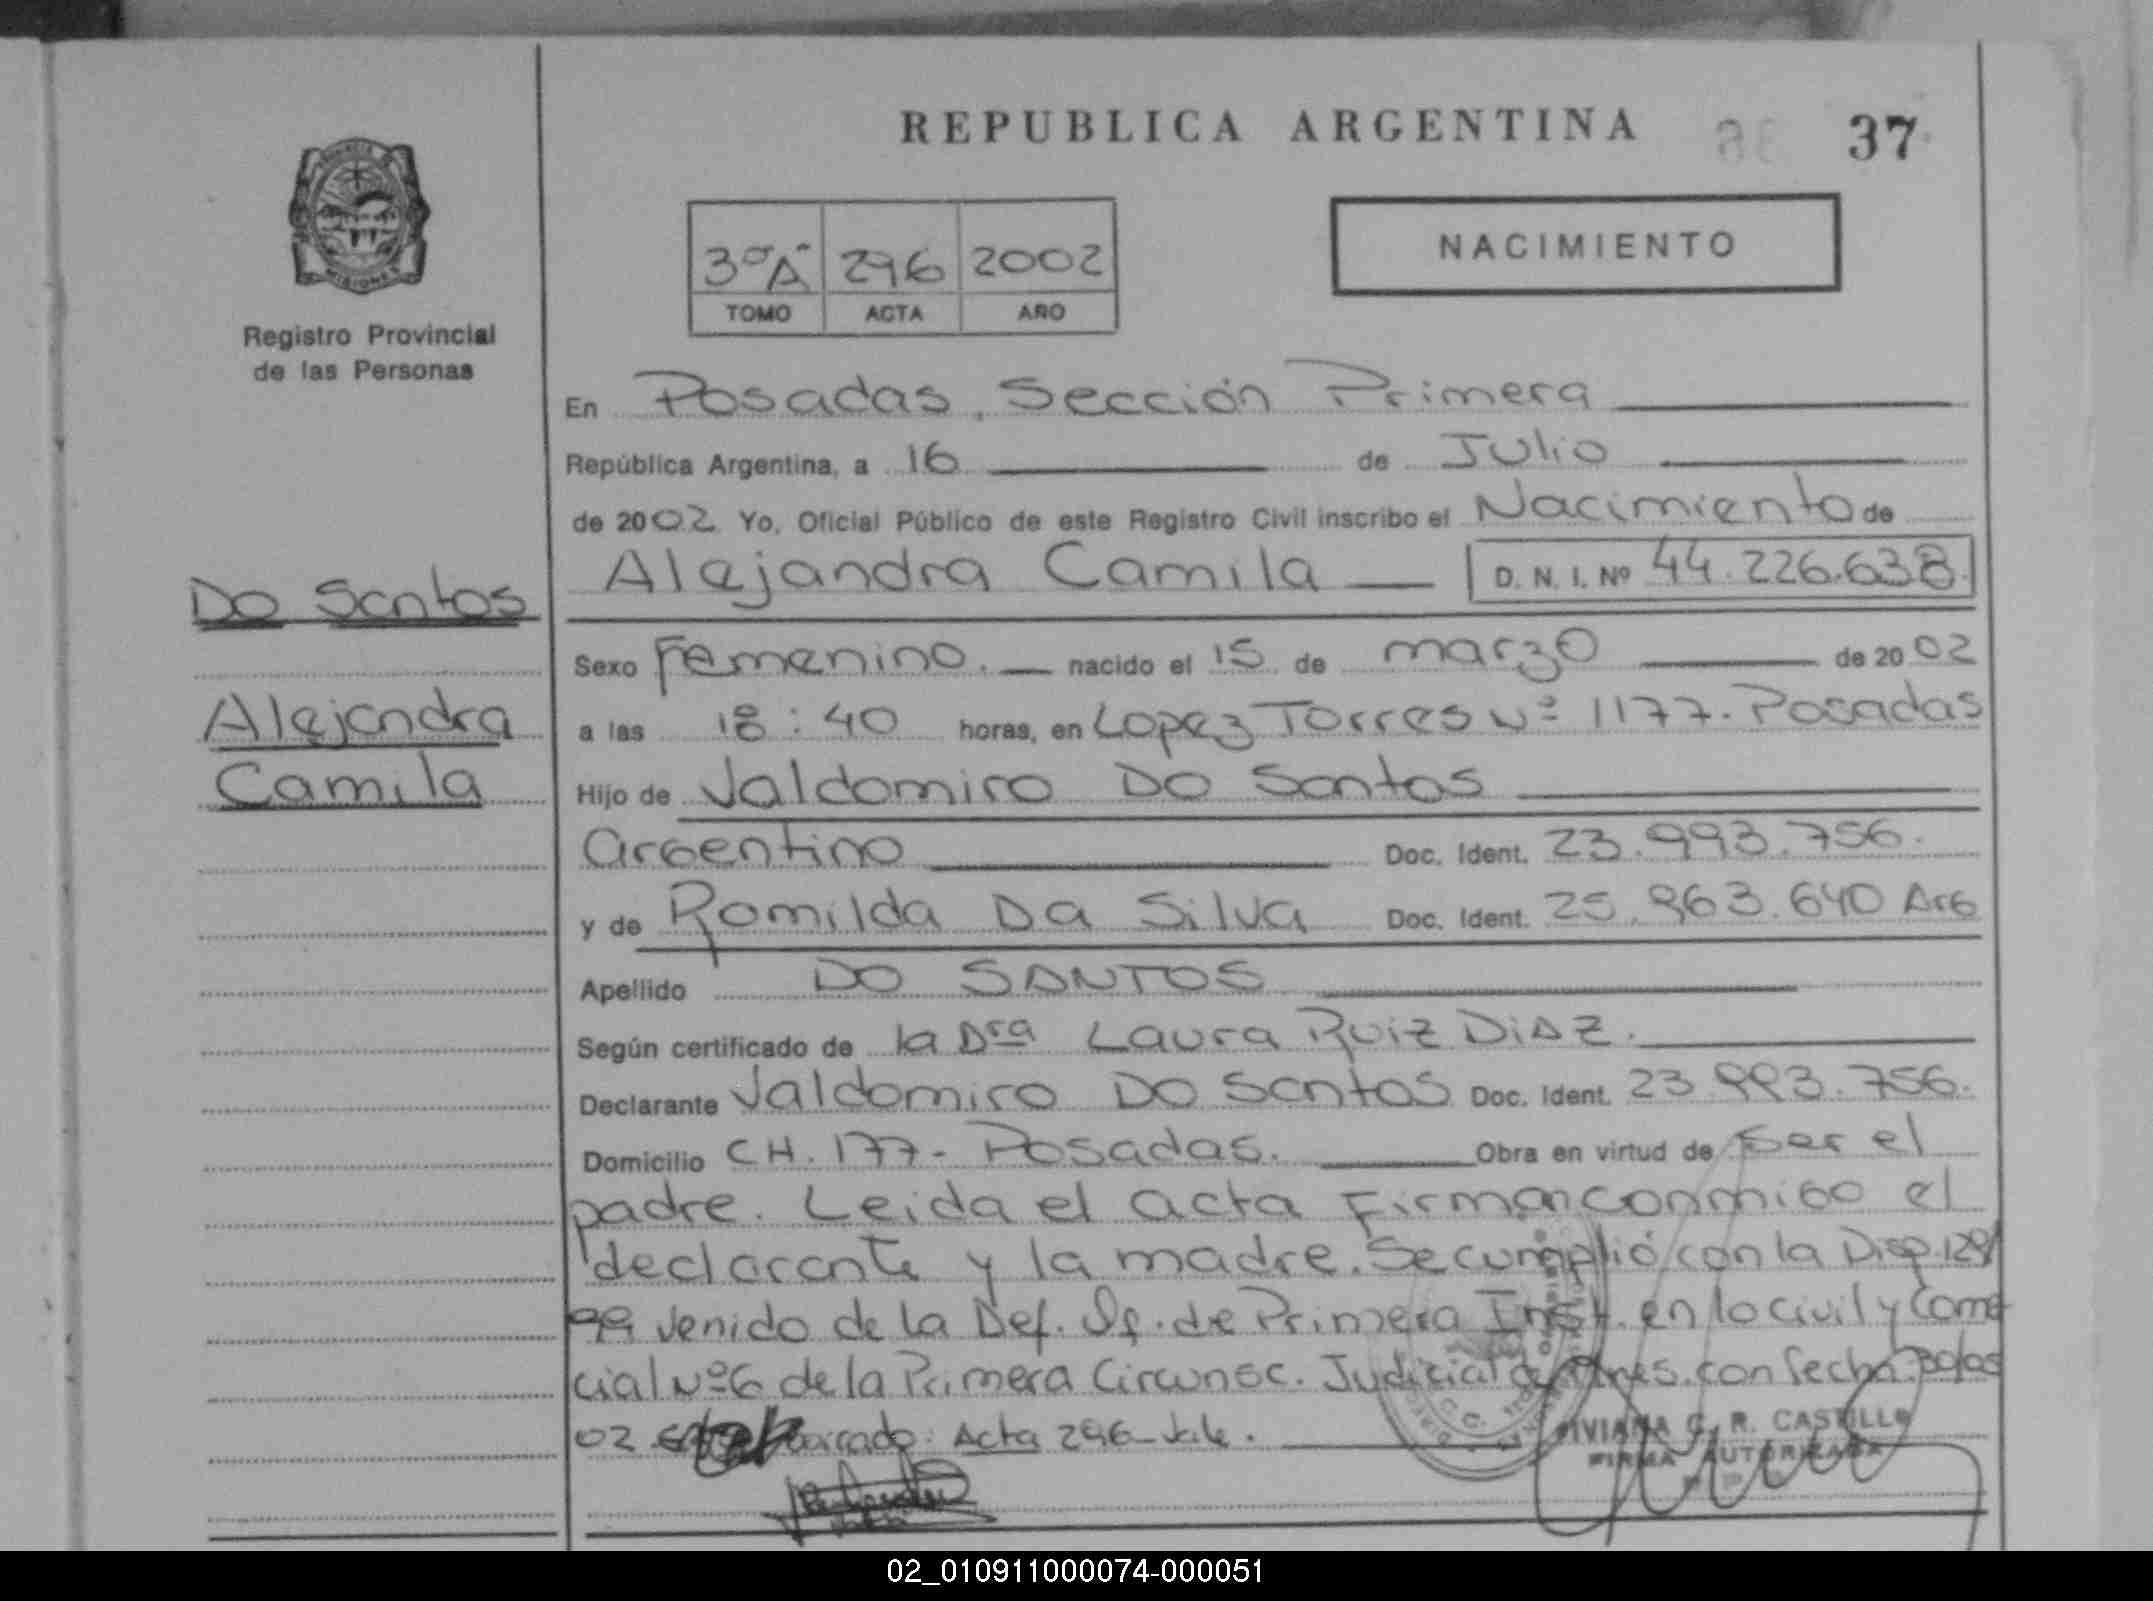 REPUBLICA ARGENTINA 36 37
PROVINCIA DE MISIONES
Registro Provincial
de las Personas
3º A 296 2002
TOMO ACTA AÑO
NACIMIENTO
En Posadas, Sección Primera
República Argentina, a 16 de Julio
de 2002 Yo, Oficial Público de este Registro Civil inscribo el Nacimiento de
Alejandra Camila D. N. I. Nº 44.226.638
Do Santos
Alejandra
Camila
Sexo Femenino. nacido el 15 de marzo de 2002
a las 18:40 horas, en Lopez Torres Nº 1177. Posadas
Hijo de Valdomiro Do Santos
argentino Doc. Ident. 23.993.756.
y de Romilda Da Silva Doc. Ident. 25.963.640 Arg
Apellido DO SANTOS
Según certificado de la Dra Laura Ruiz Diaz.
Declarante Valdomiro Do Santos Doc. Ident. 23.993.756.
Domicilio CH. 177 - Posadas. Obra en virtud de ser el
padre. Leida el acta firman conmigo el
declarante y la madre. Se cumplió con la Disp. 129/
99 venido de la Def. Of. de Primera Inst. en lo civil y Comer
cial Nº 6 de la Primera Circunsc. Judicial de Mnes. con fecha 30/05
02 Acta 296 - Vale.
VIVIANA G. R. CASTILLO
FIRMA AUTORIZADA
02_010911000074-000051